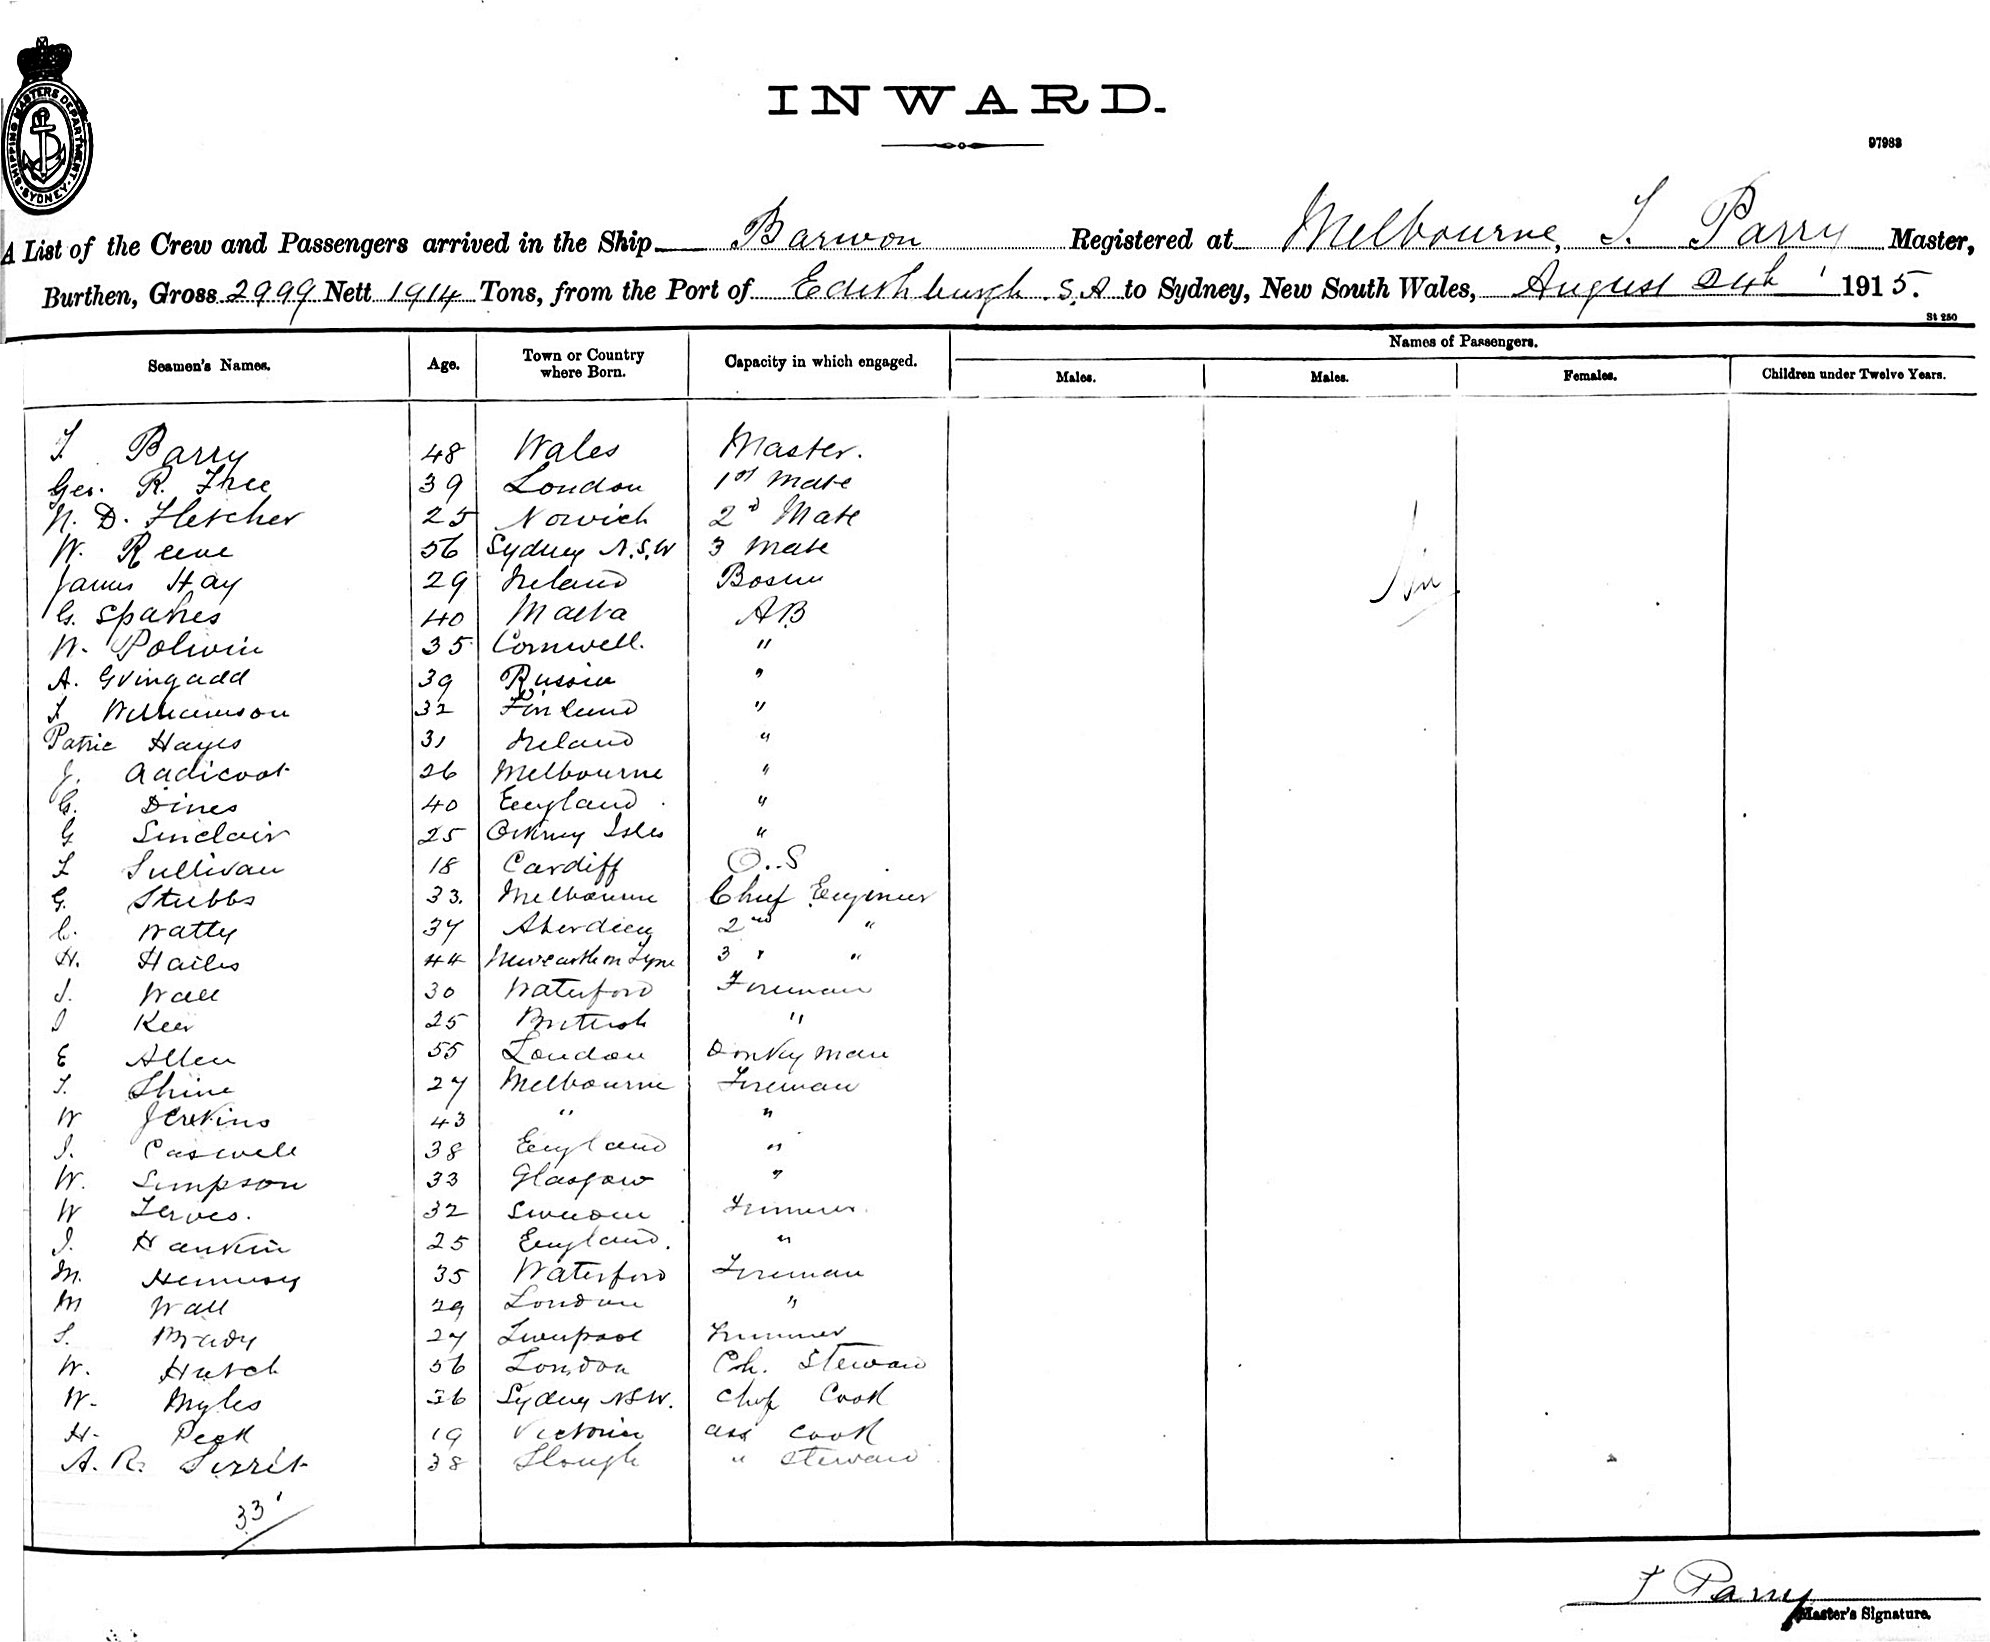 SHIPPING MASTERS DEPARTMENT SYDNEY
INWARD.
97983
A List of the Crew and Passengers arrived in the Ship Barwon Registered at Melbourne, T. Parry Master,
Burthen, Gross 2999 Nett 1914 Tons, from the Port of Edithburgh S.A to Sydney, New South Wales, August 24th 1915.
St 250
Seamen's Names. Age. Town or Country where Born. Capacity in which engaged. Names of Passengers.
Males. Males. Females. Children under Twelve Years.
T. Barry 48 Wales Master.
Geo. R. Free 39 London 1st Mate
N. D. Fletcher 25 Norwich 2d Mate
W. Reeve 56 Sydney N.S.W 3 Mate
James Hay 29 Ireland Bosun
G. 40 Malta AB
W. Polwin 35 Cornwell. "
A. Gvingadd 39 Russia "
Williamson 32 Finland "
Patric Hayes 31 Ireland "
J. Addicoat 26 Melbourne "
C. Dines 40 England "
G Sinclair 25 Orkney Isles "
Sullivan 18 Cardiff O.S
G. Stubbs 33. Melbourne Chief Engineer
C. Watty 37 Aberdeen 2nd "
H. Hailes 44 Newcastle on Tyne 3 " "
J. Wall 30 Waterford Fireman
J Keer 25 British "
E Allen 55 London Donkyman
T. Shine 27 Melbourne Fireman
W Jenkins 43 " "
J. Caswell 38 England "
W. Simpson 33 Glasgow "
W 32 Sweden Trimmer
J. Hankin 25 England. "
M. Hennesy 35 Waterford Fireman
M Wall 29 London "
Brady 27 Liverpool Trimmer
W. Hutch 56 London Ch. Steward
W. Myles 36 Sydney NSW. Chef Cook
H. Peck 19 Victoria ass Cook
A. R. 38 Slough " Steward
33
T Parry
Master's Signature.